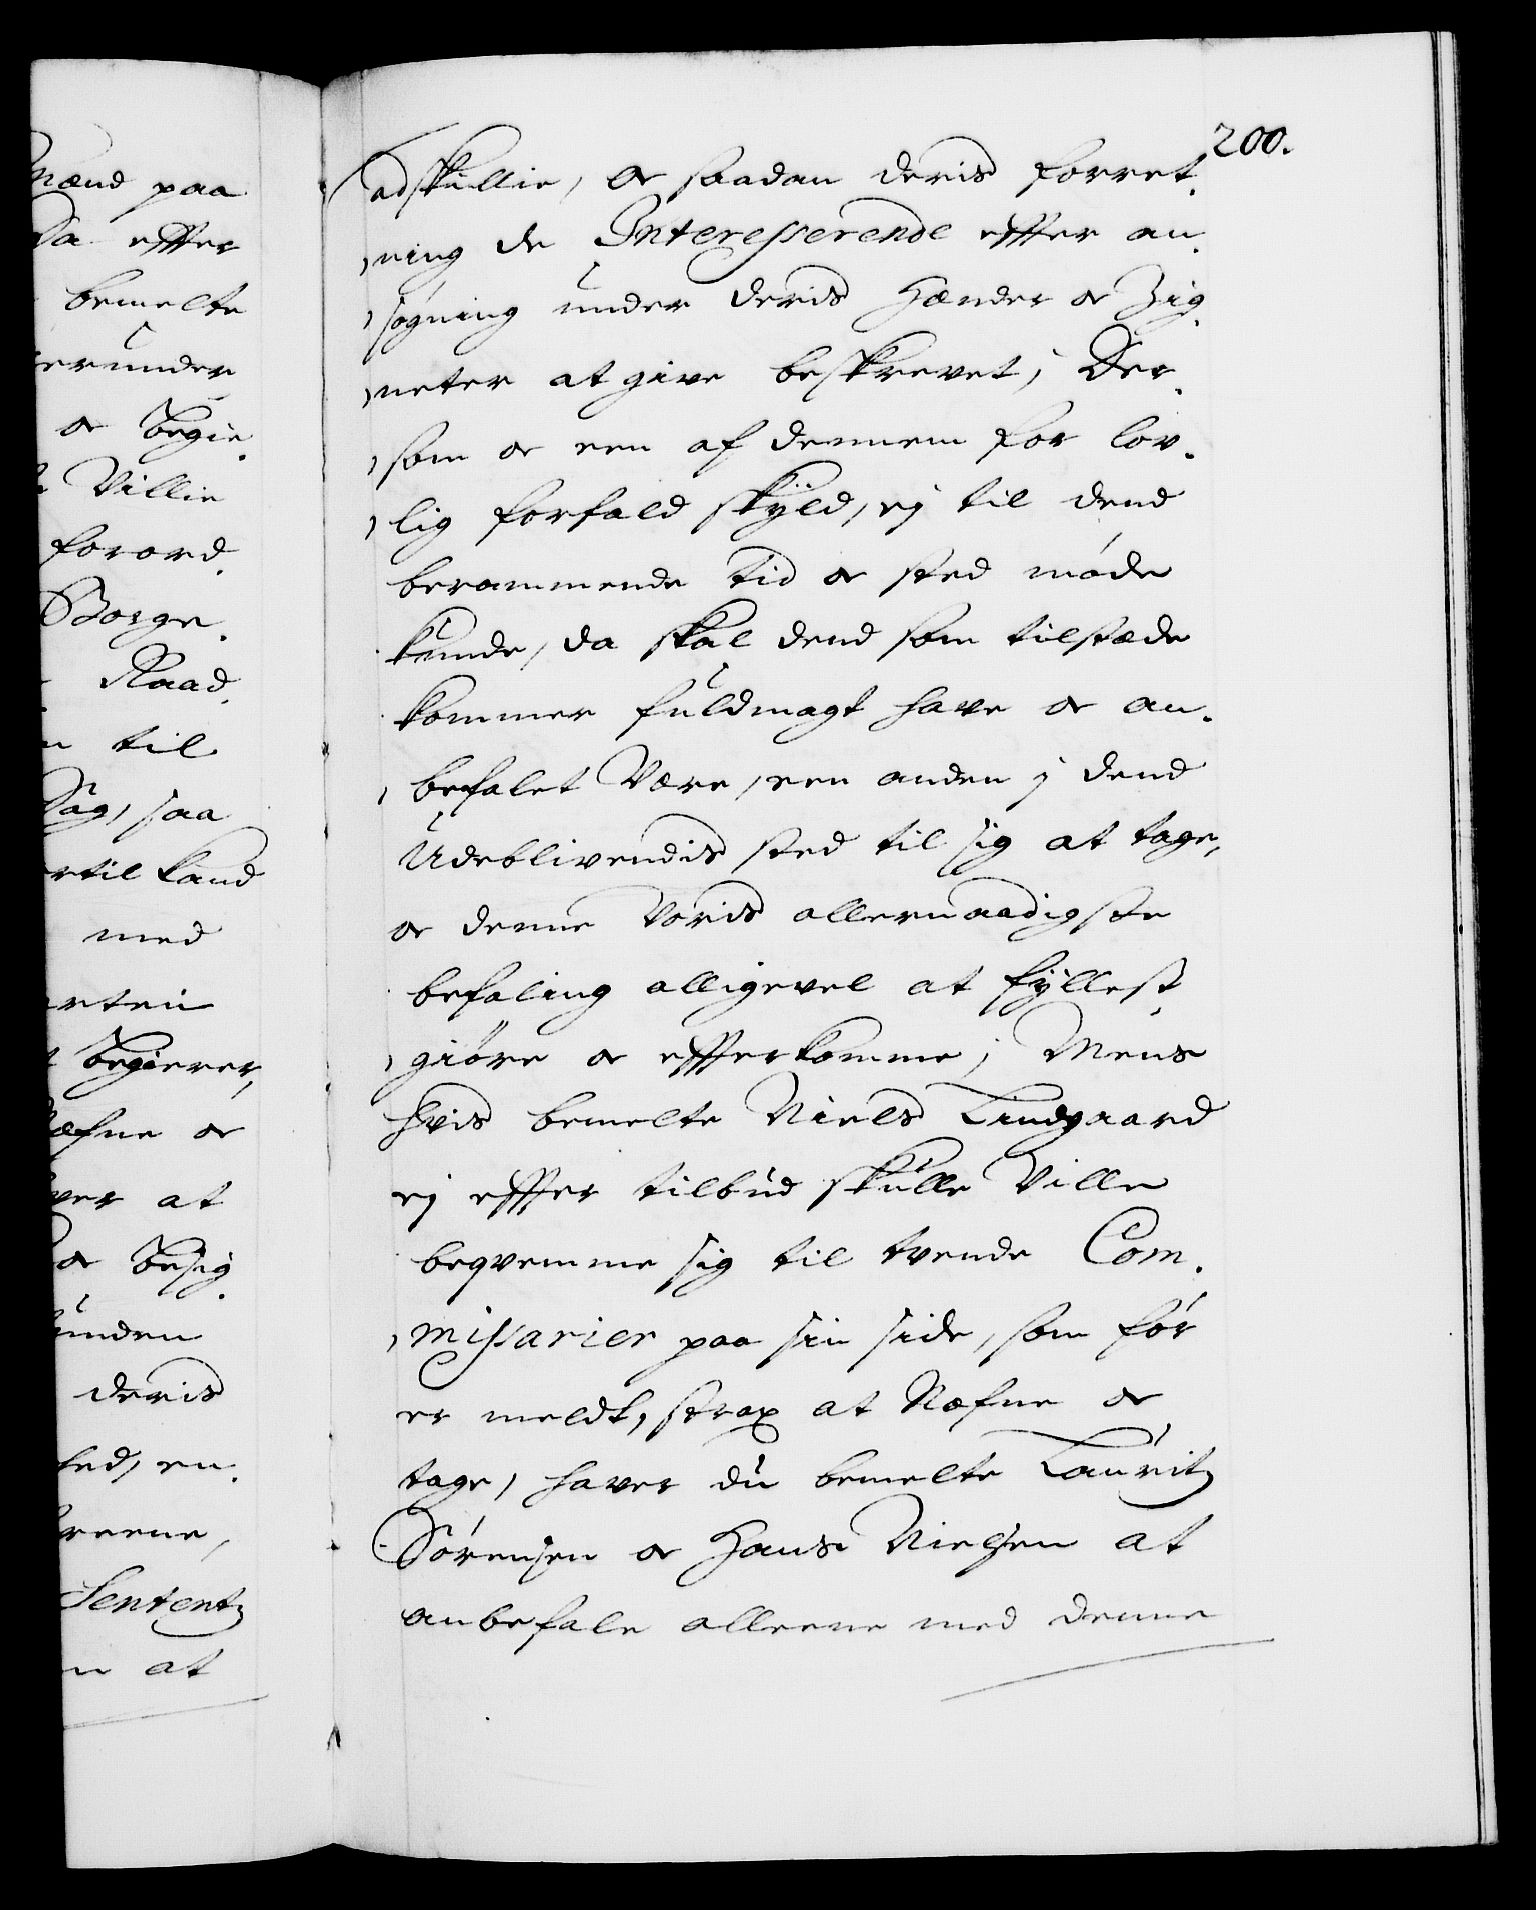 mænd paa
Da effter
bemelte
erunder
oc begie
Villie
forord
Borge
Raad
til
Sag, saa
rtil kand
med
begierer,
næfne oc
ver at
oc besig
deris
hed, en
Sententz
at
200.
adskillie, oc saadan deris forret
ning de Interesserende effter an
søgning under deris Hænder oc Zig
neter at give beskrevet; Der
som oc een af dennem for lov
lig forfald skyld, ej til dend
berammende tid oc sted møde
kunde, da skal dend som tilstæde
kommer fuldmagt have oc an
befalet være, een anden j dend
Udeblivendis sted til sig at tage,
oc denne voris allernaadigste
befaling alligevel at fyllest
giøre oc effterkomme; Mens
hvis bemelte Niels Lindgaard
ej effter tilbud skulle ville
beqvemme sig til tvende Com
missarier paa sin side, som før
er meldt, strax at Næfne oc
tage, haver du bemelte Lauritz
Sørensen oc Hans Nielsen at
anbefale alleene med denne